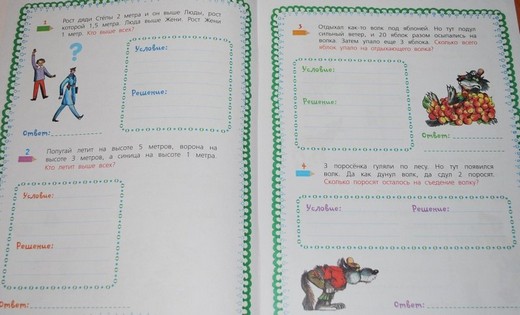 1
Рост дяди Стёпы 2 метра и он выше Люды, рост
которой 1,5 метра. Люда выше Жени. Рост Жени
1 метр. Кто выше всех?
?
Условие:
Решение:
Ответ:
2
Попугай летит на высоте 5 метров, ворона на
высоте 3 метров, а синица на высоте 1 метра.
Кто летит выше всех?
Условие:
Решение:
Ответ:
3
Отдыхал как-то волк под яблоней. Но тут подул
сильный ветер, и 20 яблок разом осыпались на
волка. Затем упало еще 3 яблока. Сколько всего
яблок упало на отдыхающего волка?
Условие:
Решение:
Ответ:
4
3 поросёнка гуляли по лесу. Но тут появился
волк. Да как дунул волк, да сдул 2 поросят.
Сколько поросят осталось на съедение волку?
Условие:
Решение:
Ответ: